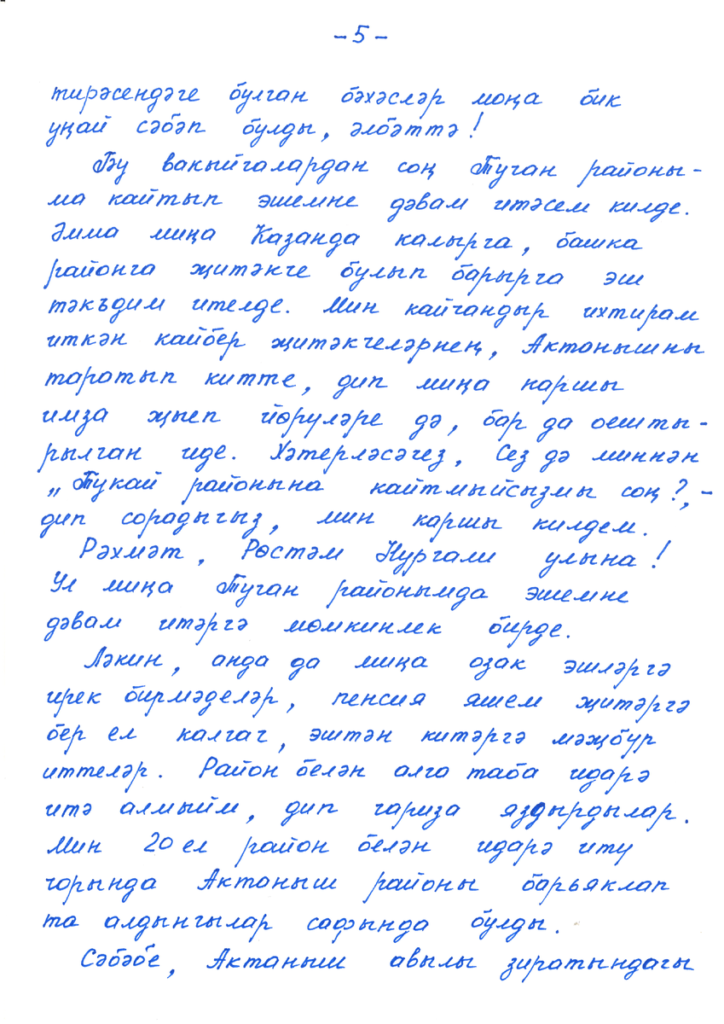 - 5 -
тирәсендәге булган бәхәсләр моңа бик
уңай сәбәп булды, әлбәттә!
Бу вакыйгалардан соң Туган районы-
ма кайтып эшемне дәвам итәсем килде.
Әмма миңа Казанда калырга, башка
районга җитәкче булып барырга эш
тәкъдим ителде. Мин кайчандыр ихтирам
иткән кайбер җитәкчеләрнең, Актанышны
таратып китте, дип миңа каршы
имза җыеп йөрүләре дә, бар да оешты-
рылган иде. Хәтерләсәгез, Сез дә миннән
„Тукай районына кайтмыйсызмы соң?,-
дип сорадыгыз, мин каршы килдем.
Рәхмәт, Рөстәм Нургали улына!
Ул миңа Туган районымда эшемне
дәвам итәргә мөмкинлек бирде.
Ләкин, анда да миңа озак эшләргә
ирек бирмәделәр, пенсия яшем җитәргә
бер ел калгач, эштән китәргә мәҗбүр
иттеләр. Район белән алга таба идарә
итә алмыйм, дип гариза яздырдылар.
Мин 20 ел район белән идарә итү
чорында Актаныш районы барьяклап
та алдынгылар сафында булды.
Сәбәбе, Актаныш авылы зиратындагы